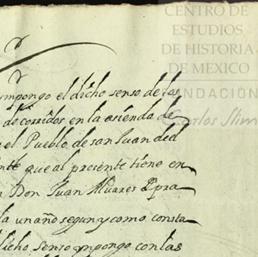 CENTRO DE
ESTUDIOS
DE HISTORIA
DE MEXICO
FUNDACIÓN
Carlos Slim
ympongo el dicho senso de las
de corridos en la asienda de
el Pueblo de san Juan del
nte que al presente tiene en
Don Juan Alvares
la un año segun y como consta
dicho senso ympongo con las